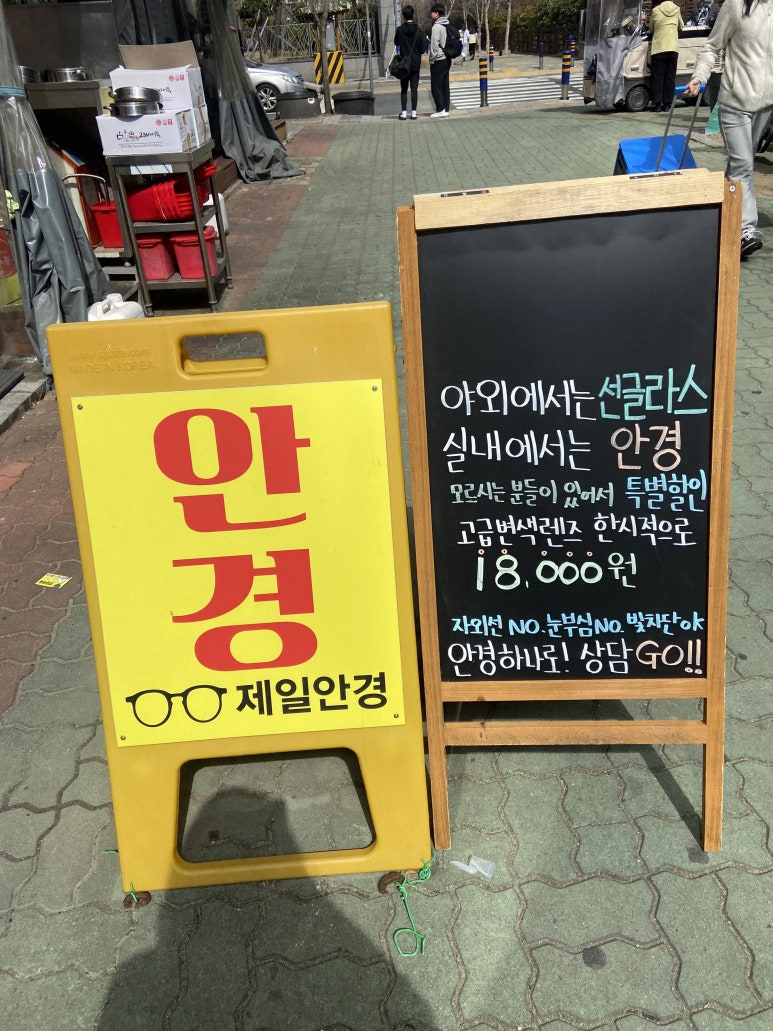 www.sisafa.com
MADE IN KOREA
안
경
제일안경
야외에서는 선글라스
실내에서는 안경
모르시는 분들이 있어서 특별할인
고급변색렌즈 한시적으로
18,000원
자외선 NO. 눈부심 NO. 빛차단 OK
안경하나로! 상담 GO!!